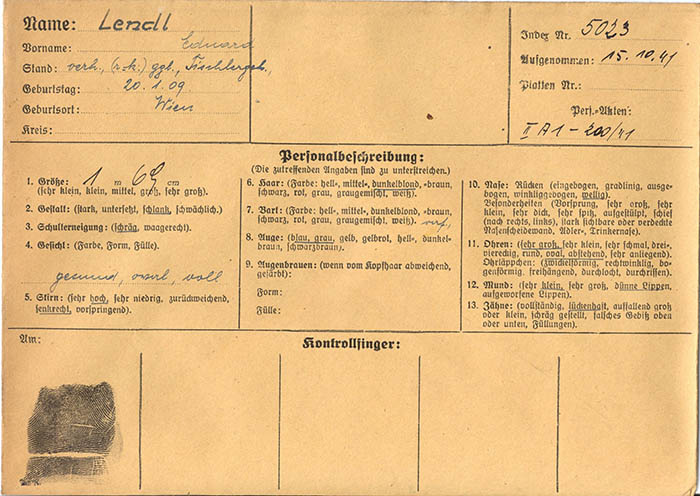 Name: Lendl
Vorname: Eduard
Stand: verh., (r.-k.) ggl., Tischlergeh.
Geburtstag: 20.1.09
Geburtsort: Wien
Kreis:
Index Nr. 5023
Aufgenommen: 15.10.41
Platten Nr.:
Pers.-Akten:
II A1 - 200/41
Personalbeschreibung:
(Die zutreffenden Angaben sind zu unterstreichen.)
1. Größe: 1 m 62 cm
(sehr klein, klein, mittel, groß, sehr groß).
2. Gestalt: (stark, untersetzt, schlank, schwächlich.)
3. Schulterneigung: (schräg, waagerecht.)
4. Gesicht: (Farbe, Form, Fülle).
gesund, oval, voll
5. Stirn: (sehr hoch, sehr niedrig, zurückweichend,
senkrecht, vorspringend).
6. Haar: (Farbe: hell-, mittel-, dunkelblond, -braun,
schwarz, rot, grau, graugemischt, weiß).
7. Bart: (Farbe: hell-, mittel-, dunkelblond, -braun,
schwarz, rot, grau, graugemischt, weiß).
8. Auge: (blau, grau, gelb, gelbrot, hell-, dunkel-
braun, schwarzbraun).
9. Augenbrauen: (wenn vom Kopfhaar abweichend,
gefärbt):
Form:
Fülle:
10. Nase: Rücken (eingebogen, gradlinig, ausge-
bogen, winkliggebogen, wellig).
Besonderheiten (Vorsprung, sehr groß, sehr
klein, sehr dick, sehr spitz, aufgestülpt, schief
(nach rechts, links), stark sichtbare oder verdeckte
Nasenscheidewand, Adler-, Trinkernase).
11. Ohren: (sehr groß, sehr klein, sehr schmal, drei-,
viereckig, rund, oval, abstehend, sehr anliegend).
Ohrläppchen: (zwickelförmig, rechtwinklig, bo-
genförmig, freihängend, durchlocht, durchrissen).
12. Mund: (sehr klein, sehr groß, dünne Lippen,
aufgeworfene Lippen).
13. Zähne: (vollständig, lückenhaft, auffallend groß
oder klein, schräg gestellt, falsches Gebiß oben
oder unten, Füllungen).
Am:
Kontrollfinger: